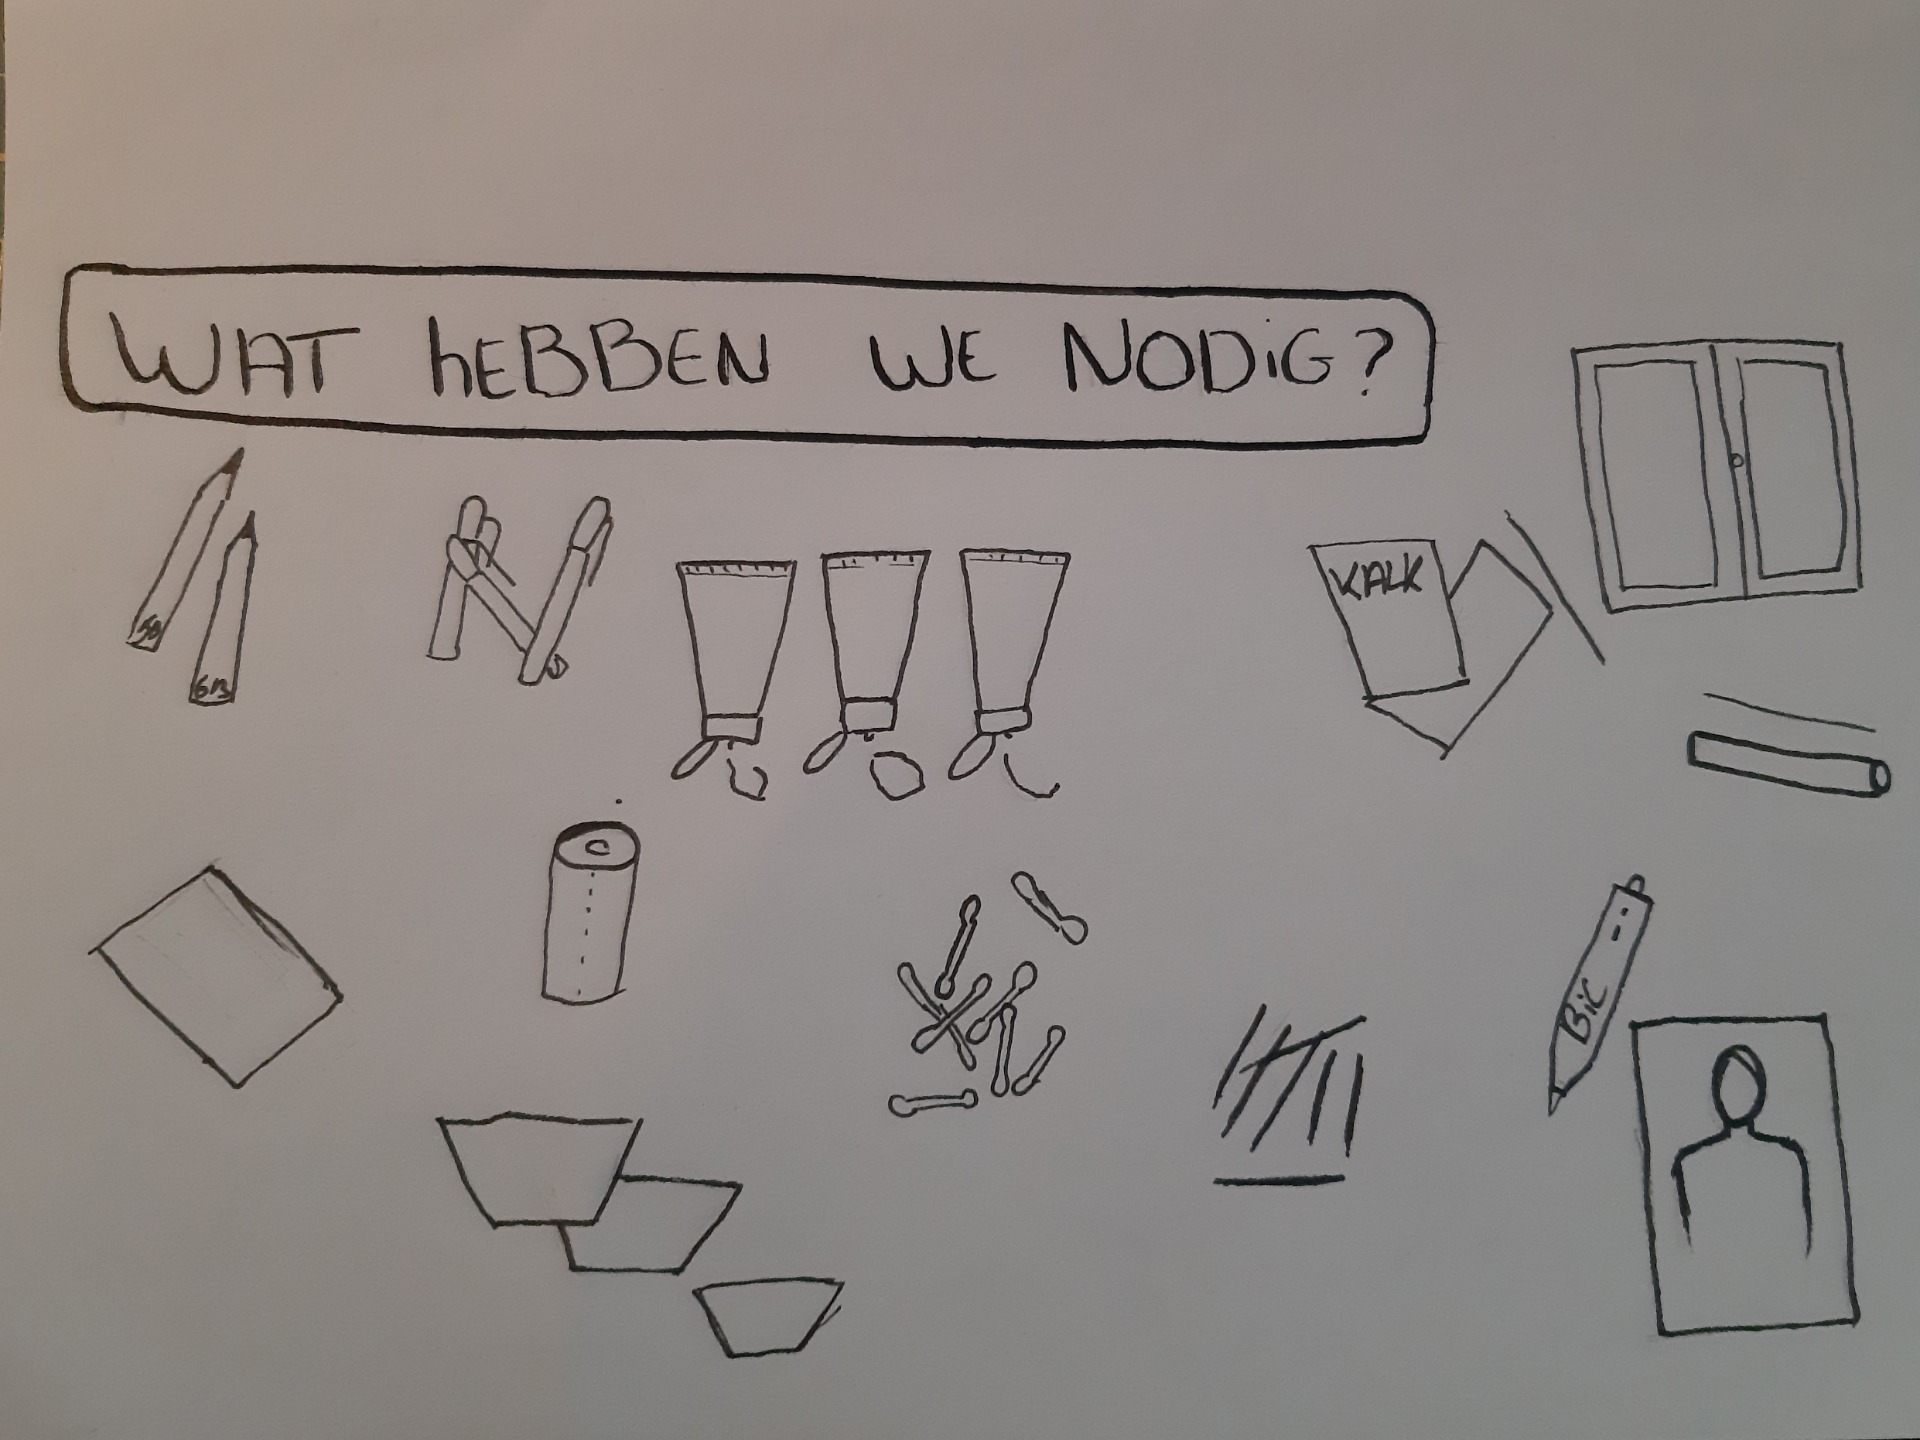 WAT hEBBEN WE NODiG?
KALK
5B
6B
BiC